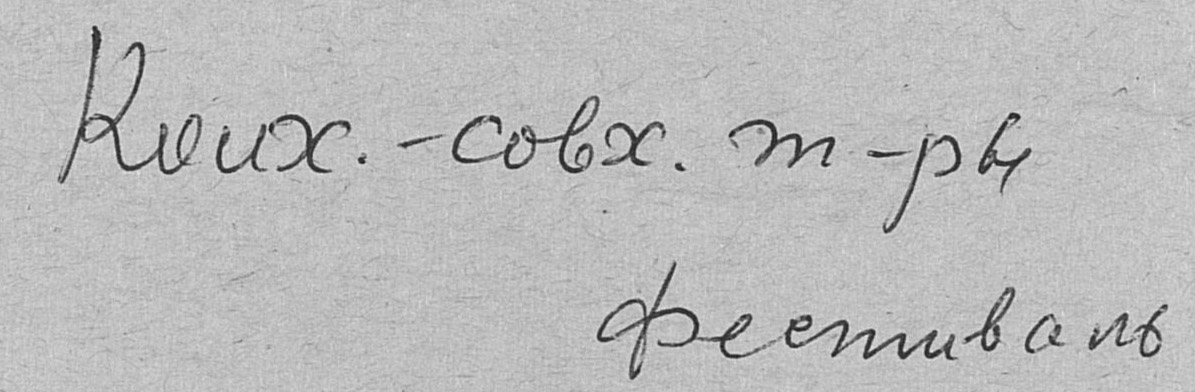 Колх.-совх. т-ры
фестиваль